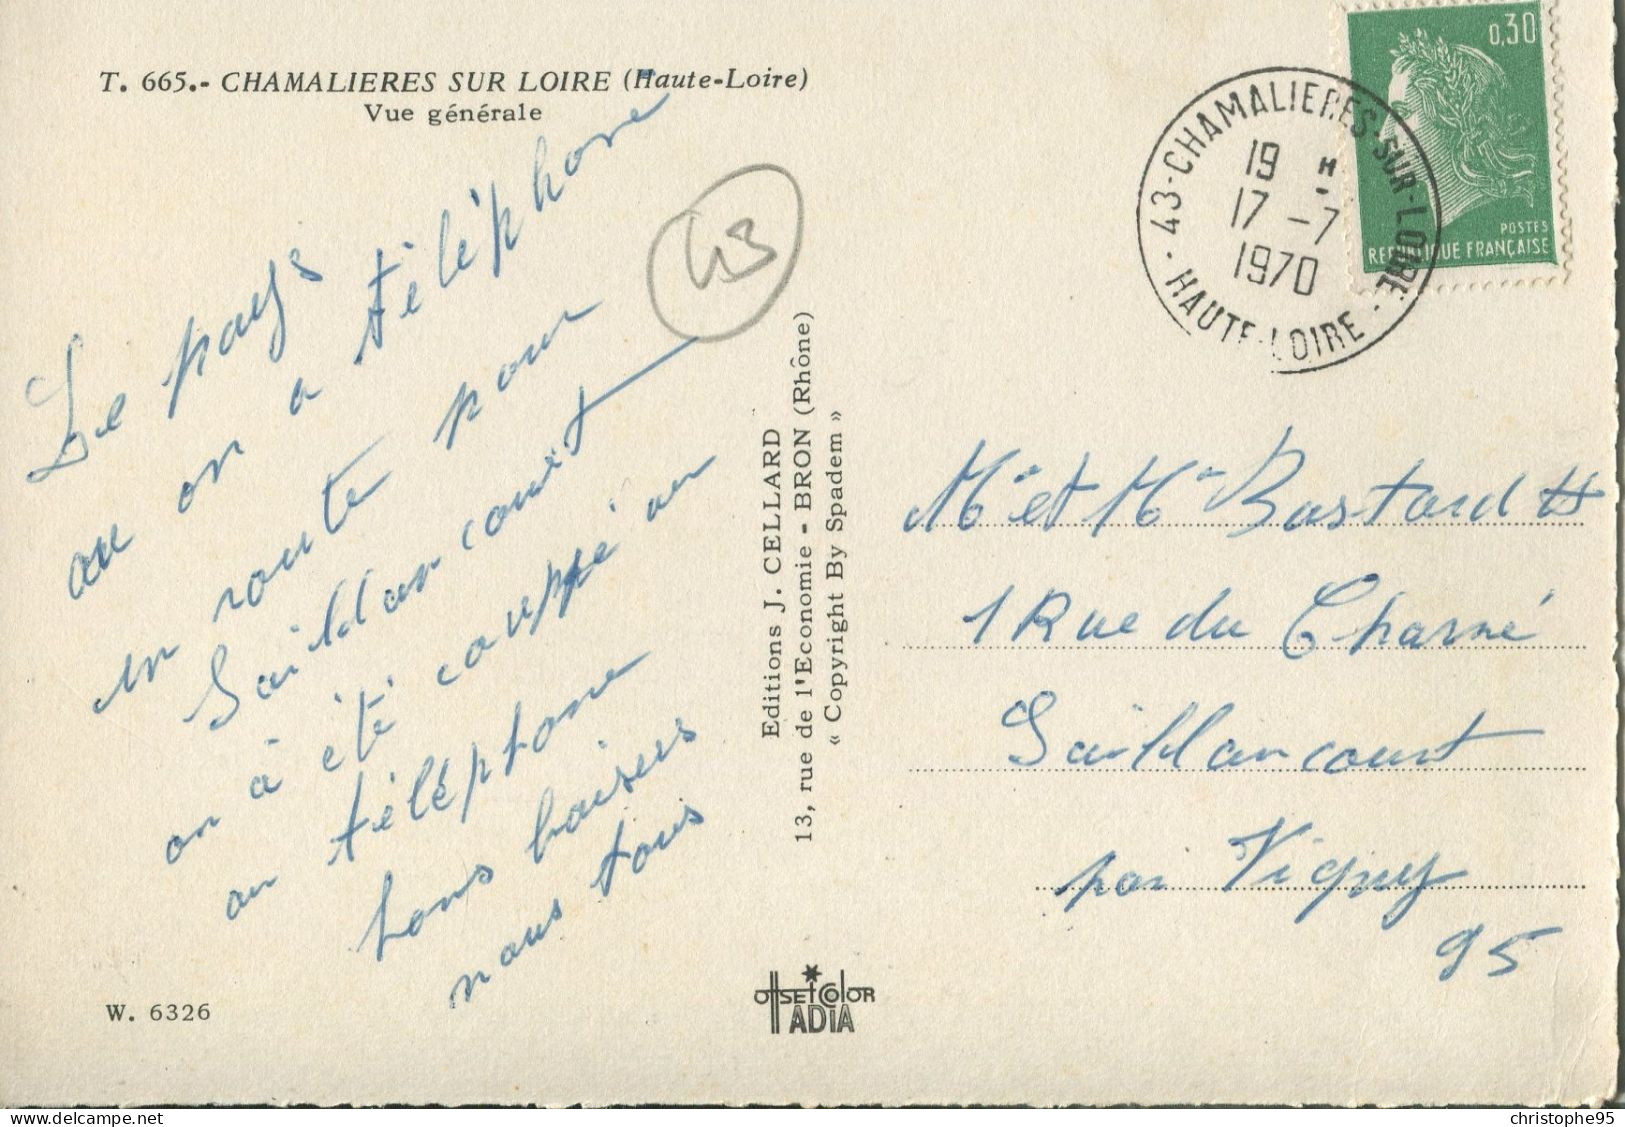 T. 665.- CHAMALIERES SUR LOIRE (Haute-Loire)
Vue générale
Le pays
ou on a téléphone
en route pour
Saillancourt
on a été couppé au
au téléphone
bons baisers
nous tous
W. 6326
43
Editions J. CELLARD
13, rue de l'Economie - BRON (Rhône)
« Copyright By Spadem »
OffSEt COlOR
ADIA
43-CHAMALIERES-SUR-LOIRE
19 H
17 -7
1970
HAUTE-LOIRE
0,30
POSTES
REPUBLIQUE FRANÇAISE
Mr et Me Bastard
1 Rue du Charné
Saillancourt
par Vigny
95
christophe95